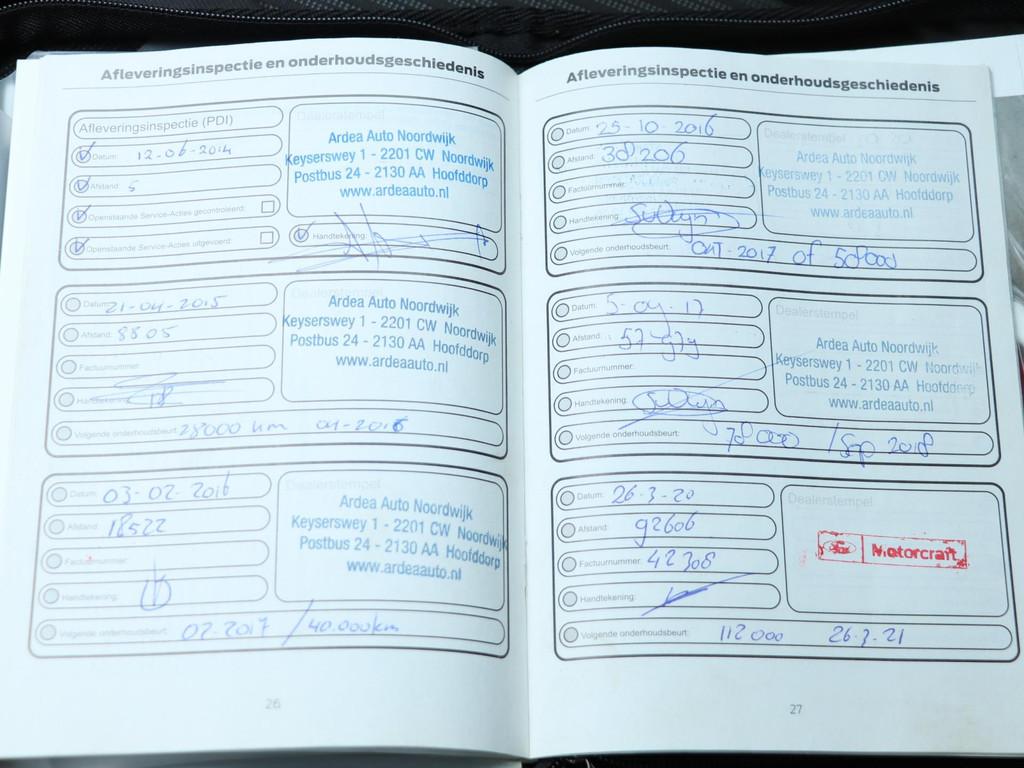 Afleveringsinspectie en onderhoudsgeschiedenis
Afleveringsinspectie (PDI)
Datum: 12-06-2014
Afstand: 5
Openstaande Service-Acties gecontroleerd:
Openstaande Service-Acties uitgevoerd:
Dealerstempel
Ardea Auto Noordwijk
Keyserswey 1 - 2201 CW Noordwijk
Postbus 24 - 2130 AA Hoofddorp
www.ardeaauto.nl
Handtekening:
Datum: 21-04-2015
Afstand: 8805
Factuurnummer:
Handtekening:
Volgende onderhoudsbeurt: 28000 km 04-2016
Dealerstempel
Ardea Auto Noordwijk
Keyserswey 1 - 2201 CW Noordwijk
Postbus 24 - 2130 AA Hoofddorp
www.ardeaauto.nl
Datum: 03-02-2016
Afstand: 18522
Factuurnummer:
Handtekening:
Volgende onderhoudsbeurt: 02-2017 / 40.000km
Dealerstempel
Ardea Auto Noordwijk
Keyserswey 1 - 2201 CW Noordwijk
Postbus 24 - 2130 AA Hoofddorp
www.ardeaauto.nl
26
Afleveringsinspectie en onderhoudsgeschiedenis
Datum: 25-10-2016
Afstand: 38206
Factuurnummer:
Handtekening:
Volgende onderhoudsbeurt: OKT-2017 of 58000
Dealerstempel
Ardea Auto Noordwijk
Keyserswey 1 - 2201 CW Noordwijk
Postbus 24 - 2130 AA Hoofddorp
www.ardeaauto.nl
Datum:
Afstand:
Factuurnummer:
Handtekening:
Volgende onderhoudsbeurt: 78000 / Sep 2018
Dealerstempel
Ardea Auto Noordwijk
Keyserswey 1 - 2201 CW Noordwijk
Postbus 24 - 2130 AA Hoofddorp
www.ardeaauto.nl
Datum: 26-3-20
Afstand: 92606
Factuurnummer: 42308
Handtekening:
Volgende onderhoudsbeurt: 112000 26-3-21
Dealerstempel
Ford Motorcraft
27